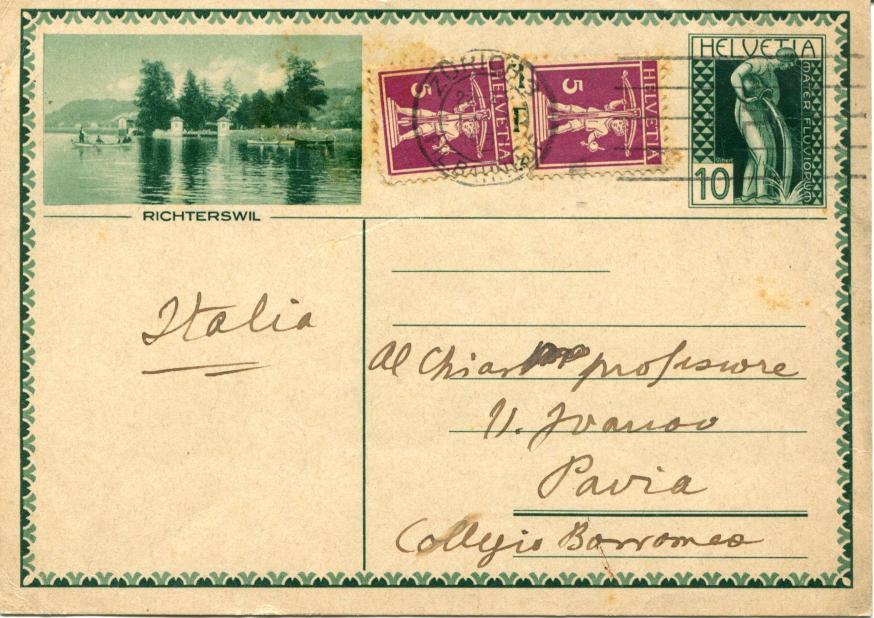 HELVETIA
MATER FLUVIORUM
10
HELVETIA
5
HELVETIA
5
ZÜRICH
RICHTERSWIL
Italia
Al Chiar professore
V. Ivanov
Pavia
Collegio Borromeo